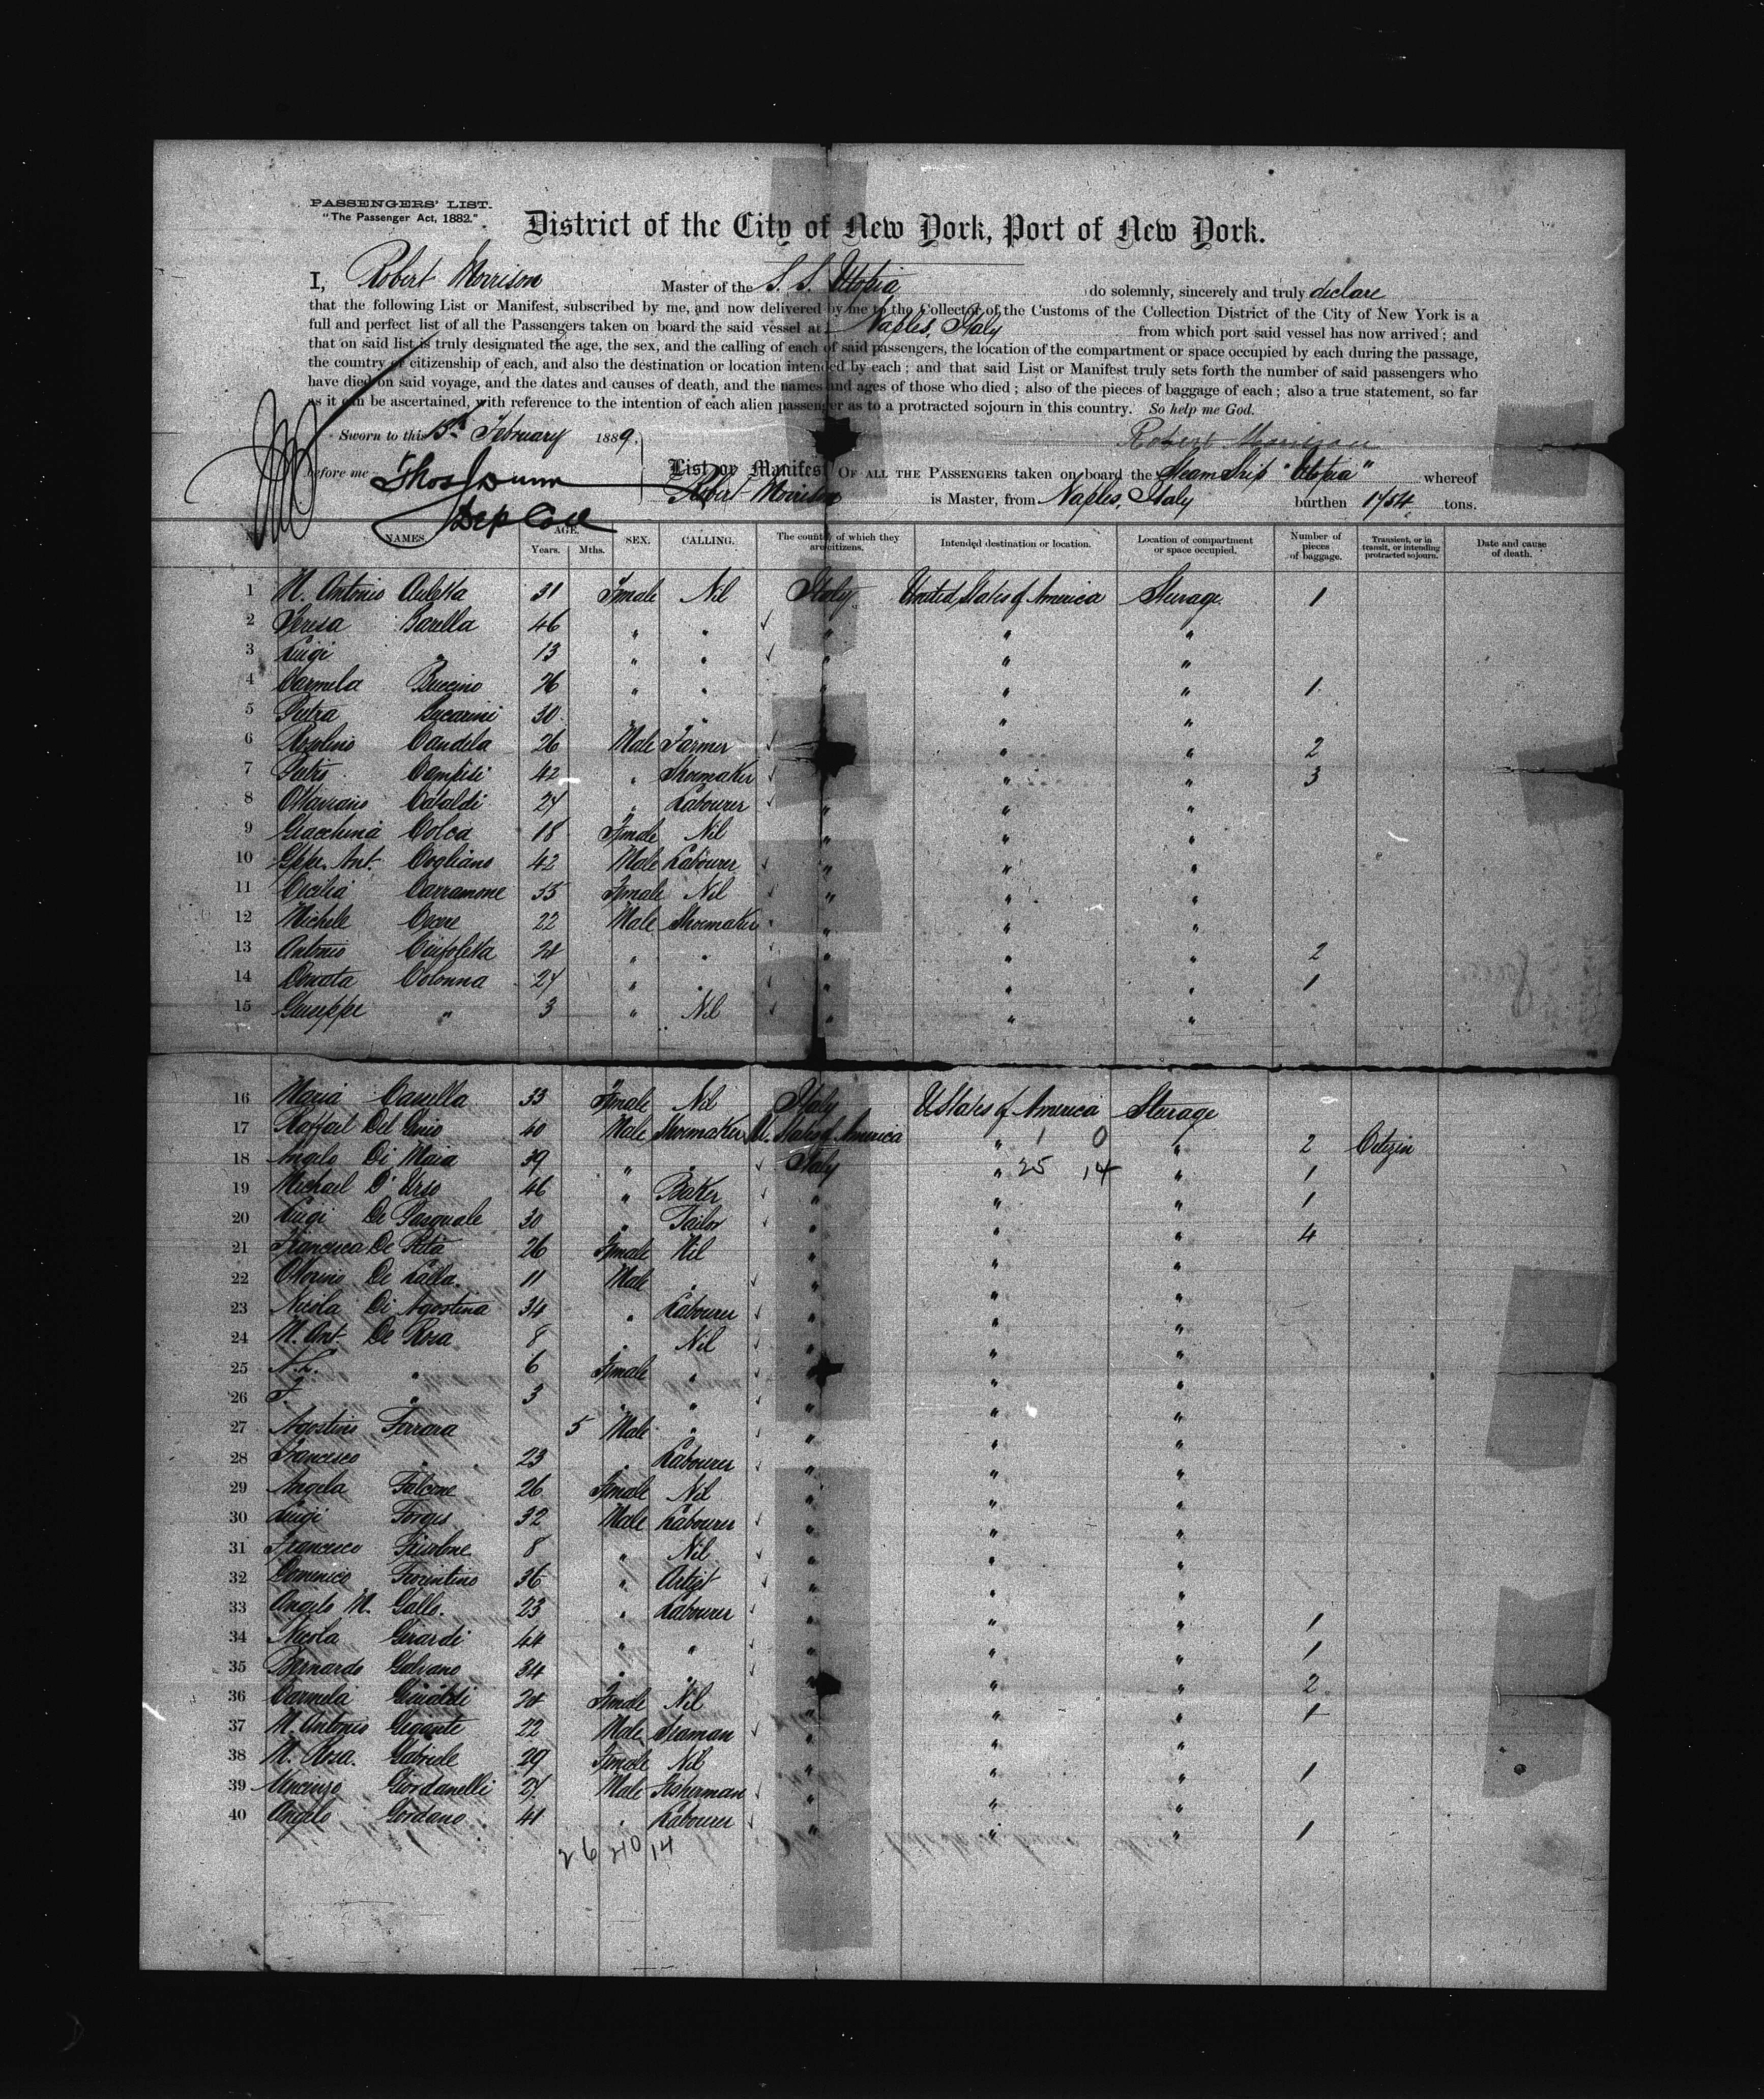 PASSENGERS' LIST.
"The Passenger Act, 1882."
District of the City of New York, Port of New York.
I, Robert Morrison Master of the S. S. Utopia do solemnly, sincerely and truly declare
that the following List or Manifest, subscribed by me, and now delivered by me to the Collector of the Customs of the Collection District of the City of New York is a
full and perfect list of all the Passengers taken on board the said vessel at Naples, Italy from which port said vessel has now arrived; and
that on said list is truly designated the age, the sex, and the calling of each of said passengers, the location of the compartment or space occupied by each during the passage,
the country of citizenship of each, and also the destination or location intended by each; and that said List or Manifest truly sets forth the number of said passengers who
have died on said voyage, and the dates and causes of death, and the names and ages of those who died; also of the pieces of baggage of each; also a true statement, so far
as it can be ascertained, with reference to the intention of each alien passenger as to a protracted sojourn in this country. So help me God.
Sworn to this 15th February 1889. Robert Morrison
before me Thos Dunn
Dep Coll
List or Manifest OF ALL THE PASSENGERS taken on board the Steam Ship "Utopia" whereof
Robert Morrison is Master, from Naples, Italy burthen 1754 tons.
NAMES. AGE. Years. Mths. SEX. CALLING. The country of which they are citizens. Intended destination or location. Location of compartment or space occupied. Number of pieces of baggage. Transient, or in transit, or intending protracted sojourn. Date and cause of death.
1 M. Antonio Auletta 31 Female Nil Italy United States of America Steerage 1
2 Teresa Barella 46 " " " " "
3 Luigi " 13 " " " " "
4 Carmela Buccino 26 " " " " " 1
5 Pietra Bucarini 30 " " " " "
6 Rosolino Candela 26 Male Farmer " " " 2
7 Pietro Campisi 42 " Shoemaker " " " 3
8 Ottaviano Cataldi 27 " Labourer " " "
9 Giacchina Colca 18 Female Nil " " "
10 Gppe. Ant. Cogliano 42 Male Labourer " " "
11 Cecilia Carramone 35 Female Nil " " "
12 Michele 22 Male Shoemaker " " "
13 Antonio 24 " " " " " 2
14 Donata Colonna 27 " " " " " 1
15 Giuseppe " 3 " Nil " " "
16 Maria Casella 33 Female Nil Italy U States of America Steerage
17 Raffael Del Genio 40 Male Shoemaker U. States of America " 1 0 " 2 Citizen
18 Angelo Di Maia 39 " " Italy " 25 14 " 1
19 Michael D'Urso 46 " Baker " " " 1
20 Luigi De Pasquale 30 " Tailor " " " 4
21 Francesca De Rita 26 Female Nil " " "
22 De Lalla 11 Male " " " "
23 Nicola Di Agostina 34 " Labourer " " "
24 M. Ant. De Rosa 8 " Nil " " "
25 N. L. " 6 Female " " " "
26 F. " 3 " " " " "
27 Agostino Ferrara 5 Male " " " "
28 Francesco " 23 " Labourer " " "
29 Angela Falcone 26 Female Nil " " "
30 Luigi Forges 32 Male Labourer " " "
31 Francesco 8 " Nil " " "
32 Domenico Fiorentino 36 " Artist " " "
33 Angelo M. Gallo. 23 " Labourer " " " 1
34 Nicola Gerardi 44 " " " " " 1
35 Bernardo Galvano 34 " " " " " 2
36 Carmela Giraldi 24 Female Nil " " " 1
37 M. Antonio Gegante 22 Male Seaman " " "
38 M. Rosa. Gabriele 29 Female Nil " " " 1
39 Vincenzo Giordanelli 27 Male Fisherman " " "
40 Angelo Giordano 41 " Labourer " " " 1
26 40 14